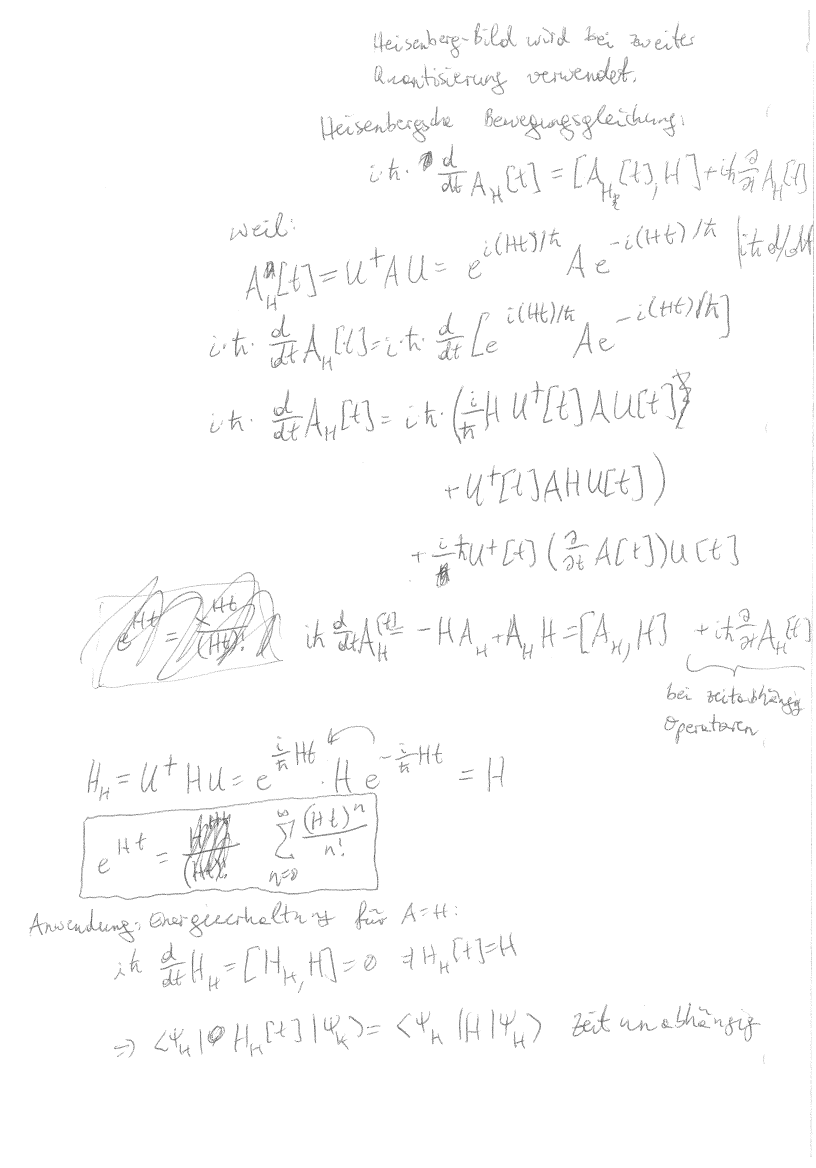 Heisenberg-Bild wird bei zweiter
Quantisierung verwendet.
Heisenbergsche Bewegungsgleichung:
i·ħ· d/dt A_H[t] = [A_H[t], H] + iħ ∂/∂t A_H[t]
weil:
A_H[t] = U^† A U = e^{i(Ht)/ħ} A e^{-i(Ht)/ħ} | iħ d/dt
i·ħ· d/dt A_H[t] = i·ħ· d/dt [e^{i(Ht)/ħ} A e^{-i(Ht)/ħ}]
i·ħ· d/dt A_H[t] = iħ·(i/ħ H U^†[t] A U[t]
+ U^†[t] A H U[t])
+ iħ U^†[t] (∂/∂t A[t]) U[t]
iħ d/dt A_H[t] = -H A_H + A_H H = [A_H, H] + iħ ∂/∂t A_H[t]
bei zeitabhängig
Operatoren
H_H = U^† H U = e^{i/ħ Ht} · H e^{-i/ħ Ht} = H
e^{Ht} = ∑_{n=0}^{∞} (Ht)^n / n!
Anwendung: Energieerhaltung für A=H:
iħ d/dt H_H = [H_H, H] = 0 ⇒ H_H[t] = H
⇒ ⟨Ψ_H| H_H[t] |Ψ_H⟩ = ⟨Ψ_H |H| Ψ_H⟩ zeitunabhängig